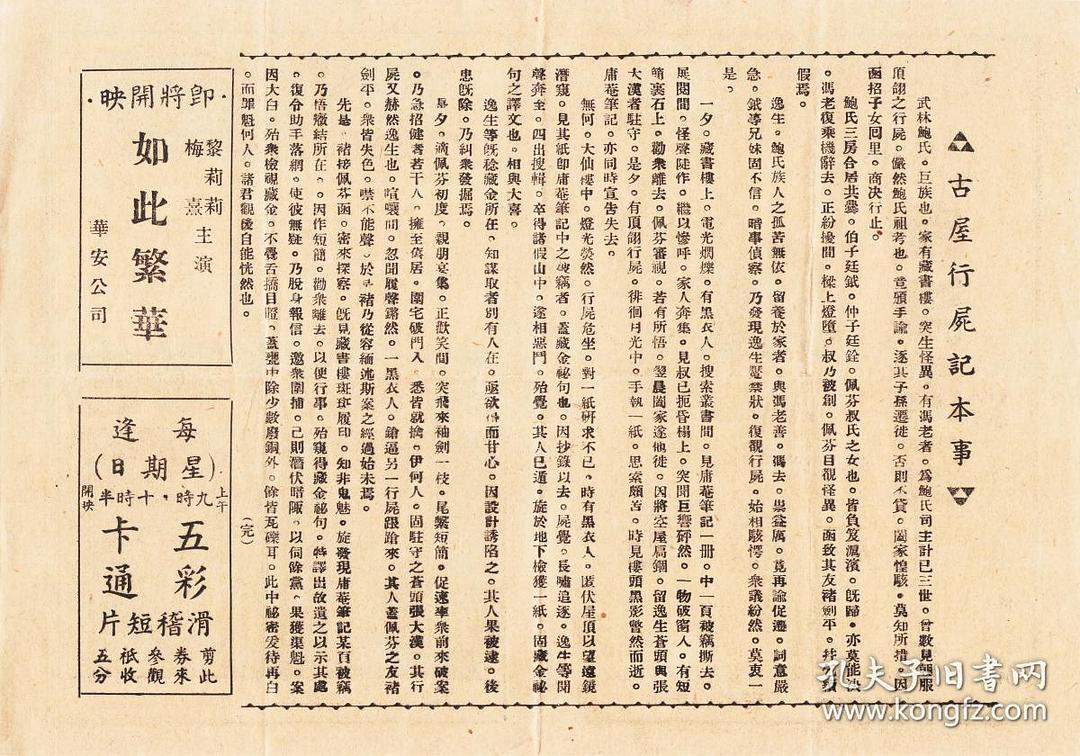 古屋行屍記本事
武林鮑氏。巨族也。家有藏書樓。突生怪異。有馮老者。爲鮑氏司主計已三世。曾數見
頂翎之行屍。儼然鮑氏祖考也。竟頒手諭。逐其子孫遷徙。否則不貸。闔家惶駭。莫知所措。因
函招子女回里。商決行止。
鮑氏三房合居共爨。伯子廷鉞。仲子廷銓。佩芬叔氏之女也。皆負笈滬濱。旣歸。亦莫能
。馮老復乘機辭去。正紛擾間。樑上燈墮。叔乃被創。佩芬目覩怪異。函致其友褚劍平。
假焉。
逸生。鮑氏族人之孤苦無依。留養於家者。與馮老善。馮去。祟益厲。竟再諭促遷。詞意嚴
急。鉞等兄妹固不信。暗事偵察。乃發現逸生。復覩行屍。始相駭愕。衆議紛然。莫衷一
是。
一夕。藏書樓上。電光烱爍。有黑衣人。搜索叢書間。見庸菴筆記一册。中一頁被竊撕去。
展閱間。怪聲陡作。繼以慘呼。家人奔集。見叔已扼昏榻上。突聞巨響砰然。一物破窗入。有短
簡裹石上。勸衆離去。佩芬審視。若有所悟。翌晨闔家遂他徙。因將空屋扃錮。留逸生蒼頭與張
大漢者駐守。是夕。有頂翎行屍。徘徊月光中。手執一紙。思索頗苦。時見樓頭黑影瞥然而逝。
庸菴筆記。亦同時宣告失去。
無何。大仙樓中。燈光熒然。行屍危坐。對一紙硏求不已。時有黑衣人。匿伏屋頂以望遠鏡
潛窺。見其紙卽庸菴筆記中之被竊者。蓋藏金祕句也。因抄錄以去。屍覺。長嘯追逐。逸生等聞
聲奔至。四出搜輯。卒得諸假山中。遂相惡鬥。殆覺。其人已遁。旋於地下檢獲一紙。固藏金祕
句之譯文也。相與大喜。
逸生等旣稔藏金所在。知謀取者別有人在。亟欲得而甘心。因設計誘陷之。其人果被逮。後
患旣除。乃糾衆發掘焉。
是夕。適佩芬初度。親朋宴集。正歡笑間。突飛來袖劍一枝。尾繫短簡。促速率衆前來破案
。乃急招健者若干人。擁至舊居。圍宅破門入。悉皆就擒。伊何人。固駐守之蒼頭張大漢。其行
屍又赫然逸生也。喧嚷間。忽聞履聲鏘然。一黑衣人。鎗逼另一行屍踉蹌來。其人蓋佩芬之友褚
劍平。衆皆失色。噤不能聲。於是褚乃從容緬述斯案之經過始末焉。
先是。褚接佩芬函。密來探察。旣見藏書樓斑斑履印。知非鬼魅。旋發現庸菴筆記某頁被竊
。乃悟癥結所在。因作短簡。勸衆離去。以便行事。殆窺得藏金祕句。特譯出故遺之以示其處
。復令助手落網。使彼無疑。乃脫身報信。邀衆圍捕。己則潛伏暗陬。以伺餘黨。果獲渠魁。案
因大白。殆衆檢視藏金。不覺舌撟目瞪。蓋甕中除少數廢銅外。餘皆瓦礫耳。此中祕密爰待再白
。而罪魁何人。諸君觀後自能恍然也。
（完）
·卽將開映·
黎莉莉
梅熹
主演
如此繁華
華安公司
每逢
（星期日）
上午九時，十時半開映
五彩卡通
滑稽短片
剪此券來參觀祇收五分
孔夫子旧书网
www.kongfz.com